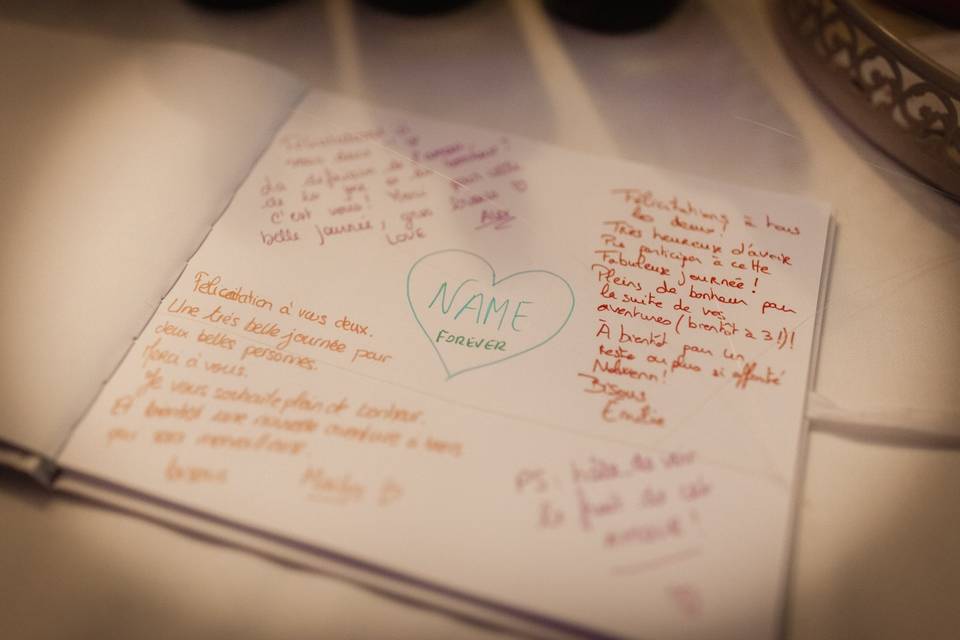 Félicitations
vous deux !
La définition de l'amour, du bonheur !
de la joie et
c'est vous ! Merci pour cette
belle journée, gros bisous
LOVE Alex
NAME
FOREVER
Félicitations à vous
les deux !
Très heureuse d'avoir
Pu participer à cette
Fabuleuse journée !
Pleins de bonheur pour
la suite de vos
aventures (bientôt à 3 !) !
À bientôt pour un
resto ou plus si affinité
Nolwenn !
Bisous
Emilie
Félicitation à vous deux.
Une très belle journée pour
deux belles personnes.
Merci à vous.
Je vous souhaite plein de bonheur.
Et bientôt une nouvelle aventure à trois
qui sera merveilleuse.
bisous
PS : hâte de voir
le fruit de cet
amour !